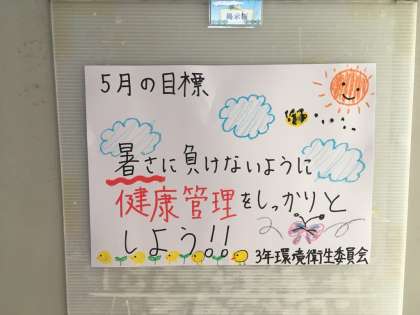 掲示板
5月の目標
暑さに負けないように
健康管理をしっかりと
しよう!!
3年環境衛生委員会